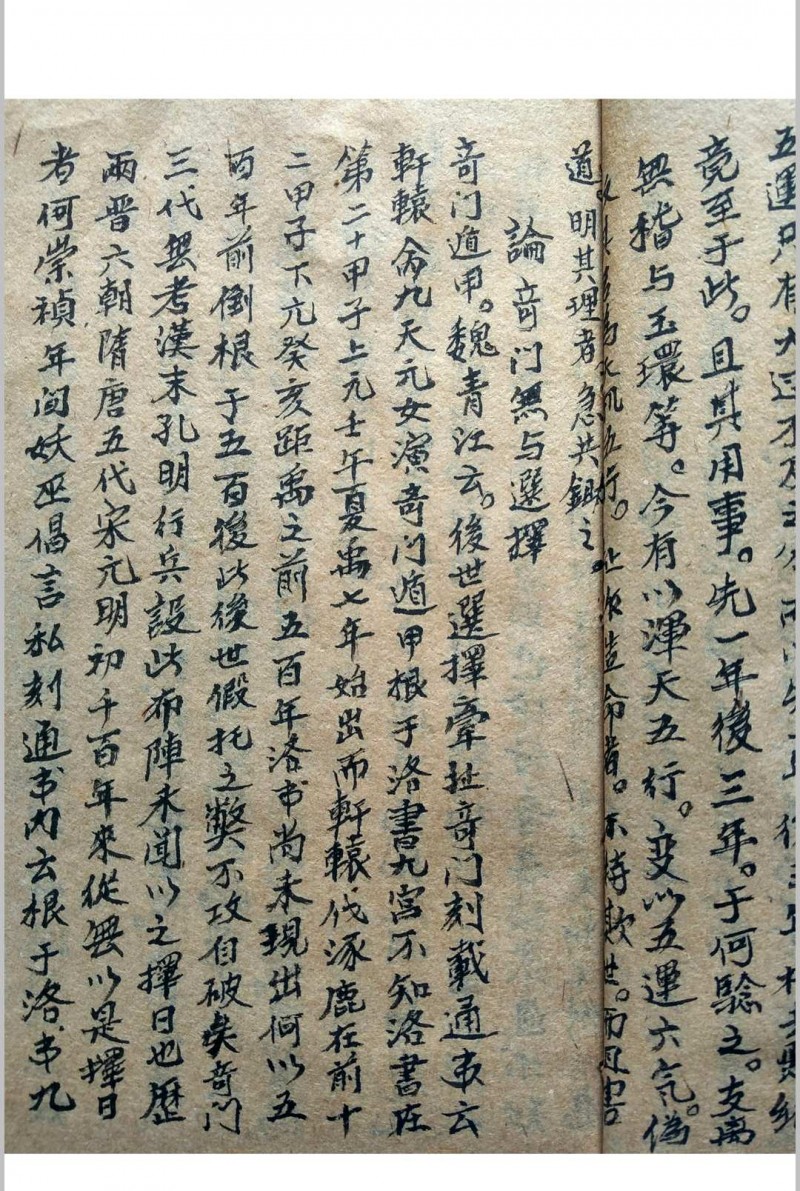 五運只有太過不及之
竟至于此。且其用事。先一年後三年。于何驗之。支离
無稽与玉環等。今有以渾天五行。变以五運六氣。偽
五行。造命者。不特欺世。而且害
道明其理者急共鋤之。
論竒门無与選擇
竒门遁甲。魏青江云。後世選擇牽扯竒门刻載通书云
軒轅命九天元女演竒门遁甲根于洛書九宮不知洛書在
第二十甲子上元壬年夏禹七年始出而軒轅伐涿鹿在前十
二甲子下元癸亥距禹之前五百年洛书尚未現出何以五
百年前倒根于五百後此後世假托之獘不攻自破矣竒门
三代無考漢末孔明行兵設此布陣未聞以之擇日也歷
兩晋六朝隋唐五代宋元明初千百年來從無以是擇日
者何崇禎年间妖巫倡言私刻通书内云根于洛书九